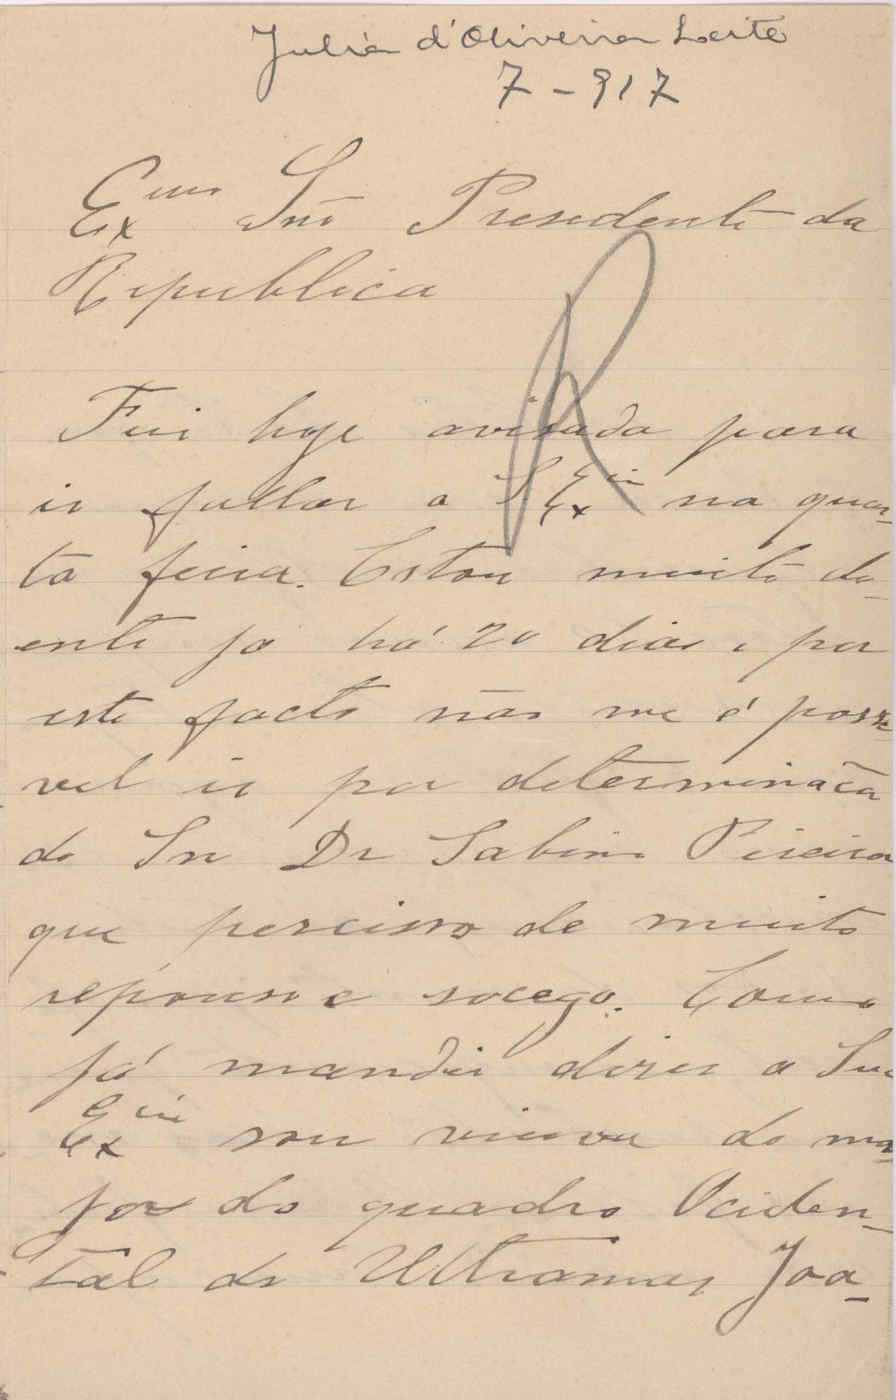 Julia d'Oliveira Leite
7-917
Exmo Snr Presidente da
Republica
R
Fui hoje avisada para
ir fallar a S Excia na quar-
ta feira. Estou muito do-
ente já há 20 dias e por
este facto não me é possi-
vel ir por determinação
do Snr Dr Sabino Pereira
que perciso de muito
repouso e socego. Como
já mandei dizer a Sua
Excia sou viuva do ma-
jor do quadro Ociden-
tal do Ultramar Joa-